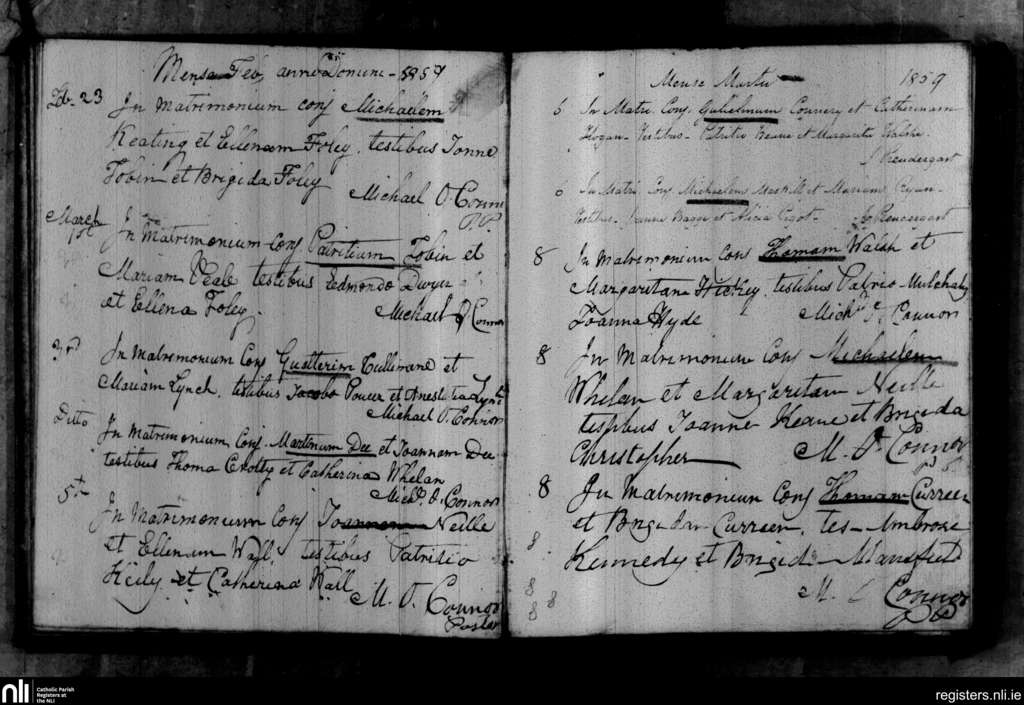 Mense Feb, anno Domini - 1859
Feb. 23 In Matrimonium conj Michaelem
Keating et Ellenam Foley, testibus Joanne
Tobin et Brigida Foley
Michael O. Connor
P.P.
March
1st In Matrimonium Conj Patritium Tobin et
Mariam Veale testibus Edmondo Dwyer
et Ellena Foley.
Michael O Connor
3rd In Matrimonium Conj Gualterim Cullinane et
Mariam Lynch, testibus Jacobo Power et Anestatia Lynch
Michael O. Connor
Ditto In Matrimonium Conj. Martinum Dee et Joannam Dee
testibus Thoma Crotty et Catherina Whelan
Michl. O. Connor
5th In Matrimonium Conj Joannem Neille
et Ellenam Wall, testibus Patritio
Kiely et Catherina Wall
M. O. Connor
Pastor
Mense Martii 1859
6 In Matri. Conj. Gulielmum Connery et Catherinam
Hogan. Testibus - Patritio Keane et Margarita Walshe.
Prendergast
In Matri. Conj Michaelem et Mariam Ryan
Testibus et Alicia Pigot - Prendergast
8 In Matrimonium Conj Thomam Walsh et
Margaritam Hickey, testibus Patricio Mulchahy
Joanna Hyde Michl. O. Connor
8 In Matrimonium Conj Michaelem
Whelan et Margaritam Neille
testibus Joanne Keane et Brigida
Christopher M. O. Connor
P.P.
8 In Matrimonium Conj Thomam Curreen
et Brigidam Curreen, tes- Ambrose
8 Kennedy et Brigida Mansfield
M. O Connor
PP
8
8 8
nli Catholic Parish
Registers at
the NLI
registers.nli.ie